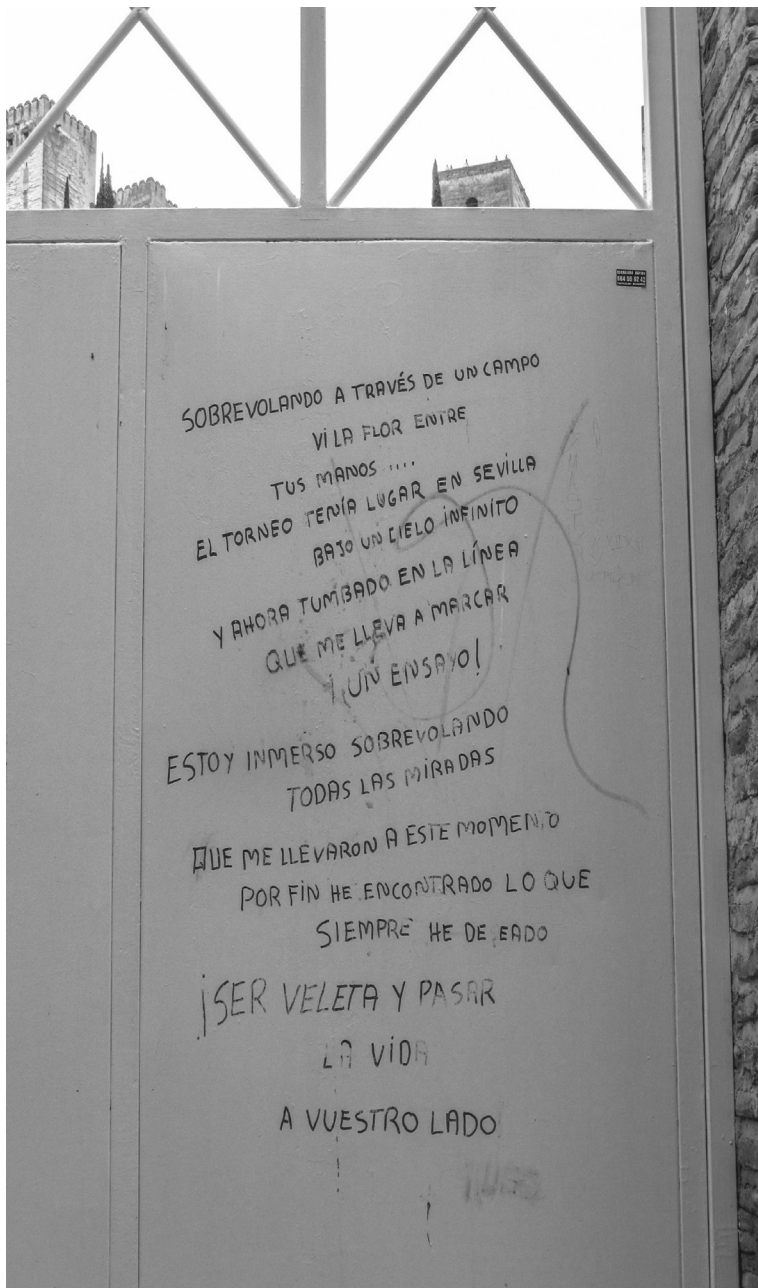 SOBREVOLANDO A TRAVÉS DE UN CAMPO
VI LA FLOR ENTRE
TUS MANOS ....
EL TORNEO TENÍA LUGAR EN SEVILLA
BAJO UN CIELO INFINITO
Y AHORA TUMBADO EN LA LÍNEA
QUE ME LLEVA A MARCAR
¡UN ENSAYO!
ESTOY INMERSO SOBREVOLANDO
TODAS LAS MIRADAS
QUE ME LLEVARON A ESTE MOMENTO
POR FÍN HE ENCONTRADO LO QUE
SIEMPRE HE DE EADO
¡SER VELETA Y PASAR
LA VIDA
A VUESTRO LADO